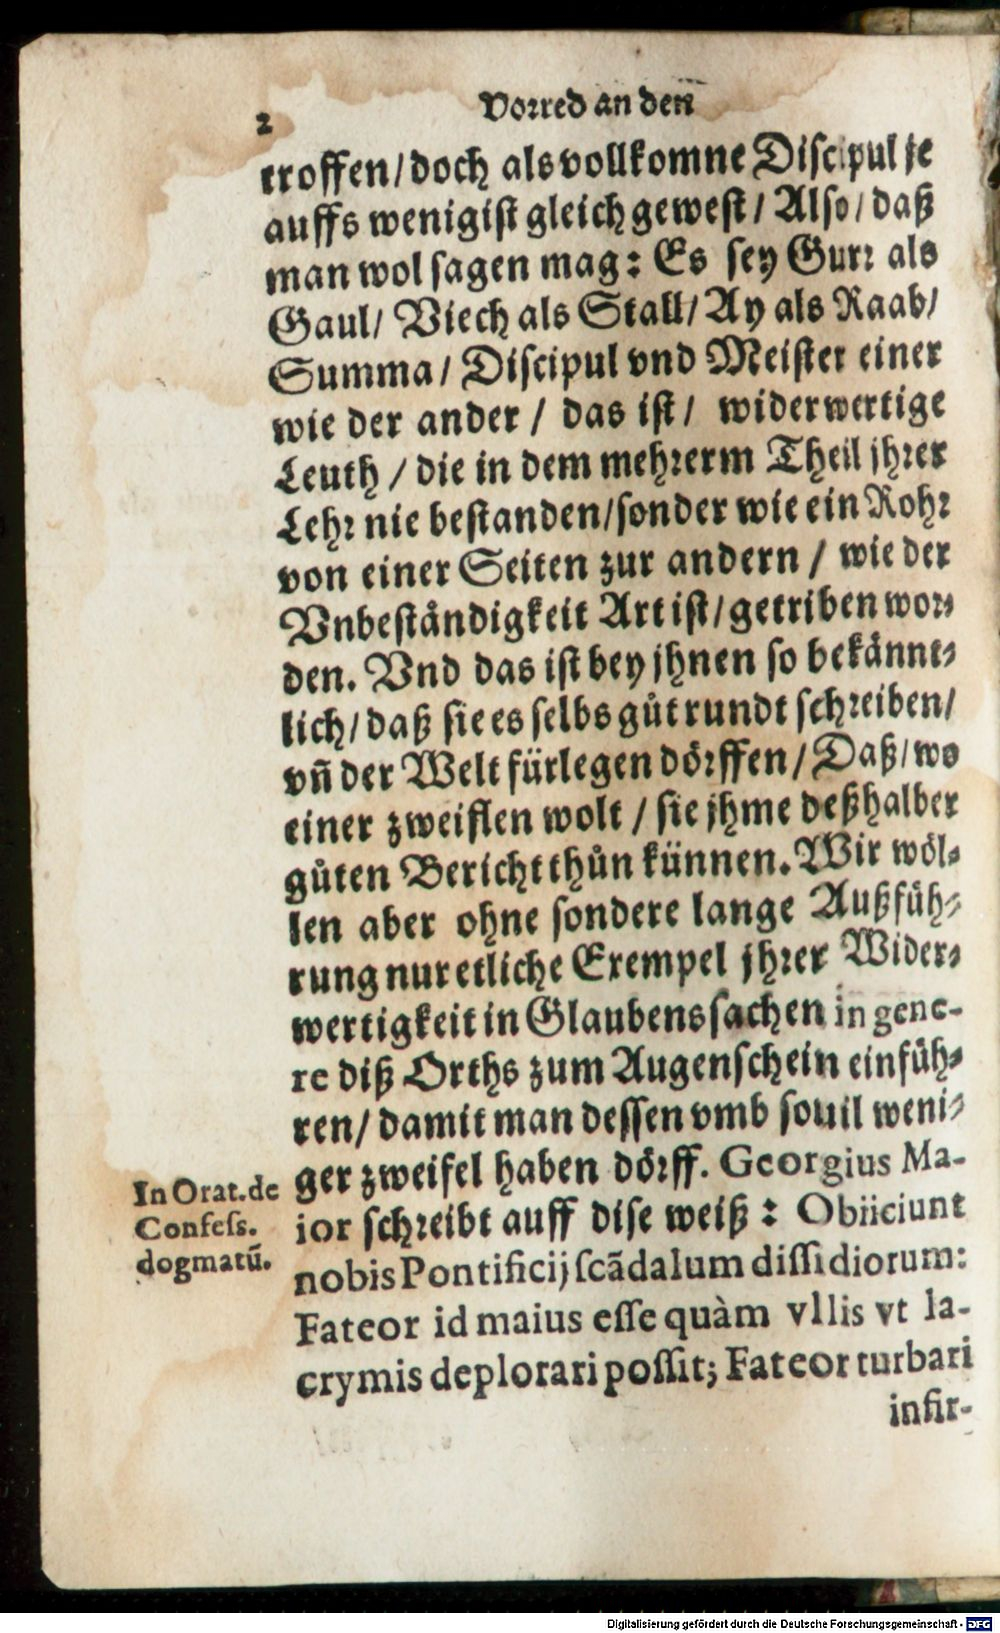 2
Vorred an den
troffen/ doch als vollkomne Discipul je
auffs wenigist gleich gewest/ Also/ daß
man wol sagen mag: Es sey Gurr als
Gaul/ Viech als Stall/ Ay als Raab/
Summa/ Discipul vnd Meister einer
wie der ander / das ist/ widerwertige
Leuth / die in dem mehrerm Theil jhrer
Lehr nie bestanden/ sonder wie ein Rohr
von einer Seiten zur andern / wie der
Vnbeståndigkeit Art ist/ getriben wor-
den. Vnd das ist bey jhnen so bekånnt-
lich/ daß sie es selbs gůt rundt schreiben/
vñ der Welt fürlegen dörffen/ Daß/ wo
einer zweiflen wolt / sie jhme deßhalber
gůten Bericht thůn künnen. Wir wöl-
len aber ohne sondere lange Außfüh-
rung nur etliche Exempel jhrer Wider-
wertigkeit in Glaubenssachen in gene-
re diß Orths zum Augenschein einfüh-
ren/ damit man dessen vmb souil weni-
ger zweifel haben dörff. Georgius Ma-
ior schreibt auff dise weiß: Obiiciunt
nobis Pontificij scãdalum dissidiorum:
Fateor id maius esse quàm vllis vt la-
crymis deplorari possit; Fateor turbari
infir-
In Orat. de
Confess.
dogmatũ.
Digitalisierung gefördert durch die Deutsche Forschungsgemeinschaft - DFG